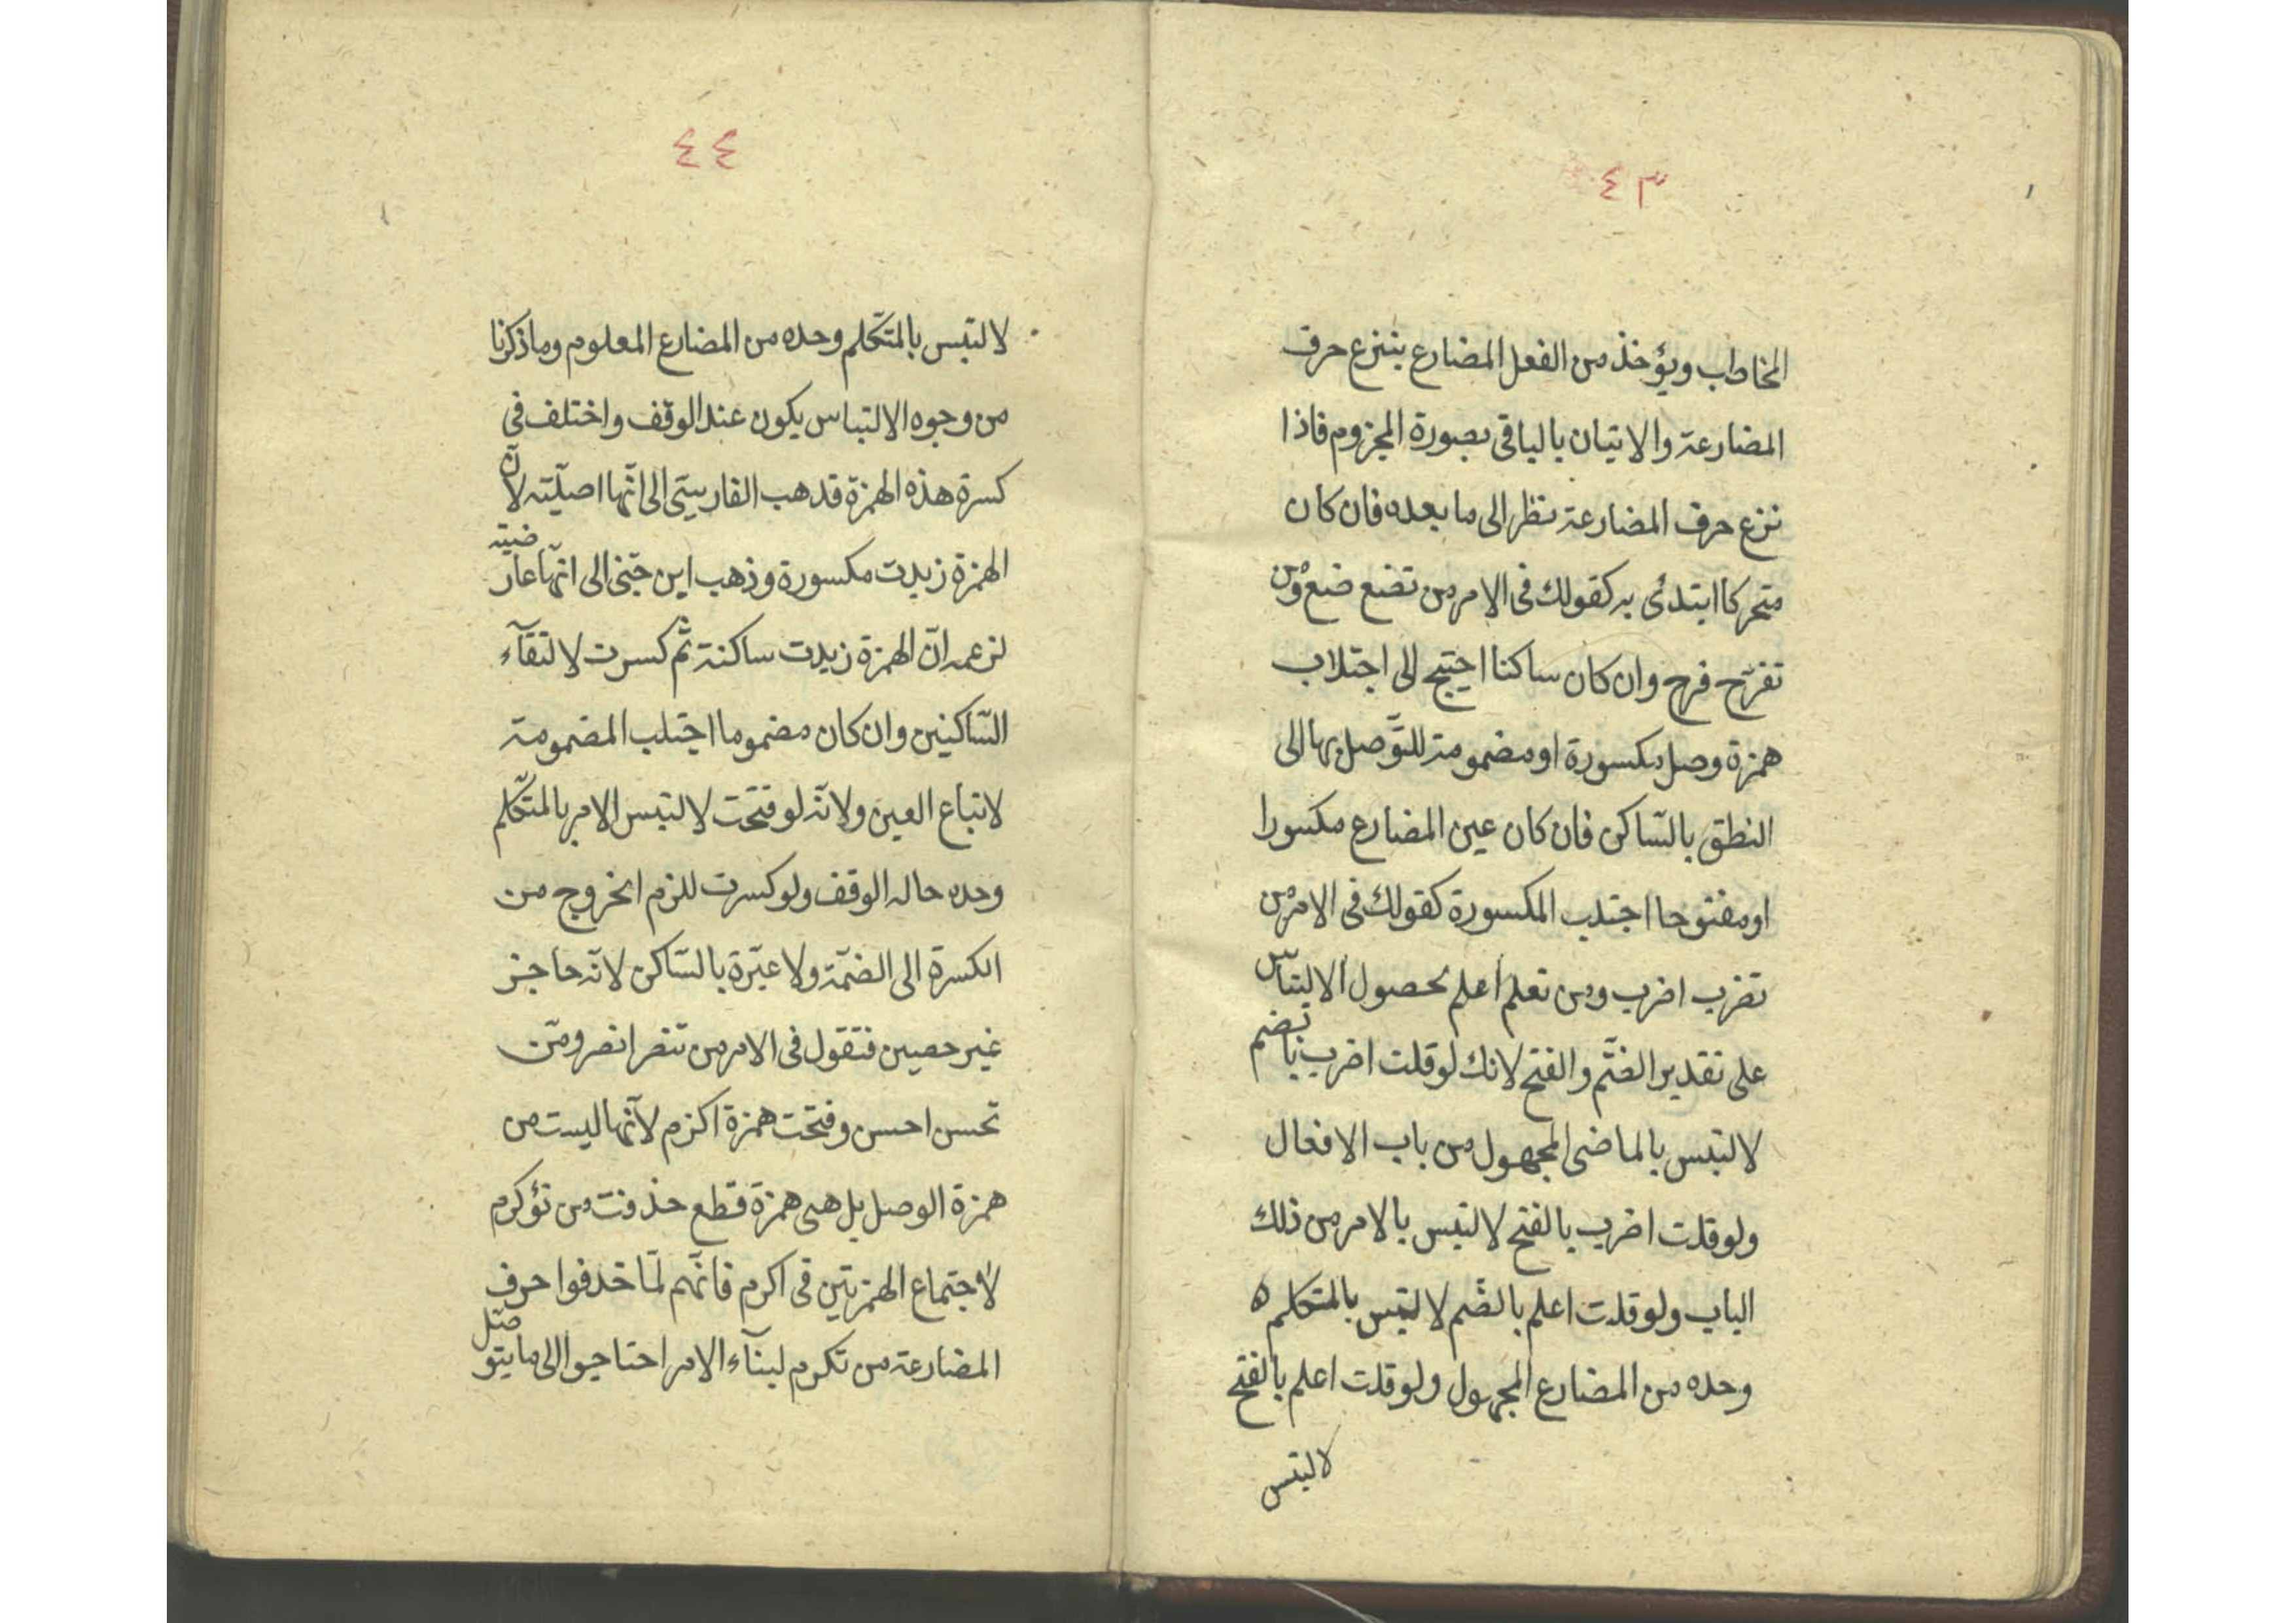 ٤٣
المخاطب ويؤخذ من الفعل المضارع بنزع حرف
المضارعة والاتيان بالباقى بصورة المجزوم فاذا
نزع حرف المضارعة نظر الى ما بعده فان كان
متحركا ابتدئ به كقولك فى الامر من تضع ضع ومن
تفرّح فرح وان كان ساكنا احتيج الى اجتلاب
همزة وصل مكسورة او مضمومة للتّوصل بها الى
النطق بالسّاكن فان كان عين المضارع مكسورا
او مفتوحا اجتلب المكسورة كقولك فى الامر من
تضرب اضرب ومن تعلم اعلم لحصول الالتباس
على تقدير الضّم والفتح لانك لو قلت اضرب بالضم
لالتبس بالماضى المجهول من باب الافعال
ولو قلت اضرب بالفتح لالتبس بالامر من ذلك
الباب ولو قلت اعلم بالضّم لالتبس بالمتكلم ه
وحده من المضارع المجهول ولو قلت اعلم بالفتح
لالتبس
٤٤
لالتبس بالمتكلم وحده من المضارع المعلوم وما ذكرنا
من وجوه الالتباس يكون عند الوقف واختلف فى
كسرة هذه الهمزة قد هب الفارسىّ الى انّها اصليّة لانّ
الهمزة زيدت مكسورة وذهب ابن جنّى الى انّها عارضية
لزعمه انّ الهمزة زيدت ساكنة ثمّ كسرت لالتقآء
السّاكنين وان كان مضموما اجتلب المضمومة
لاتباع العين ولانّه لو فتحت لالتبس الامر بالمتكلّم
وحده حاله الوقف ولو كسرت للزم الخروج من
الكسرة الى الضمّة ولا عبرة بالسّاكن لانّه حاجز
غير حصين فتقول فى الامر من تنصر انصر ومن
تحسن احسن وفتحت همزة اكرم لانّها ليست من
همزة الوصل بل هى همزة قطع حذفت من تؤكرم
لاجتماع الهمزتين فى اكرم فانّهم لمّا حذفوا حرف
المضارعة من تكرم لبنآء الامر احتاجوا الى ما يتوصّل